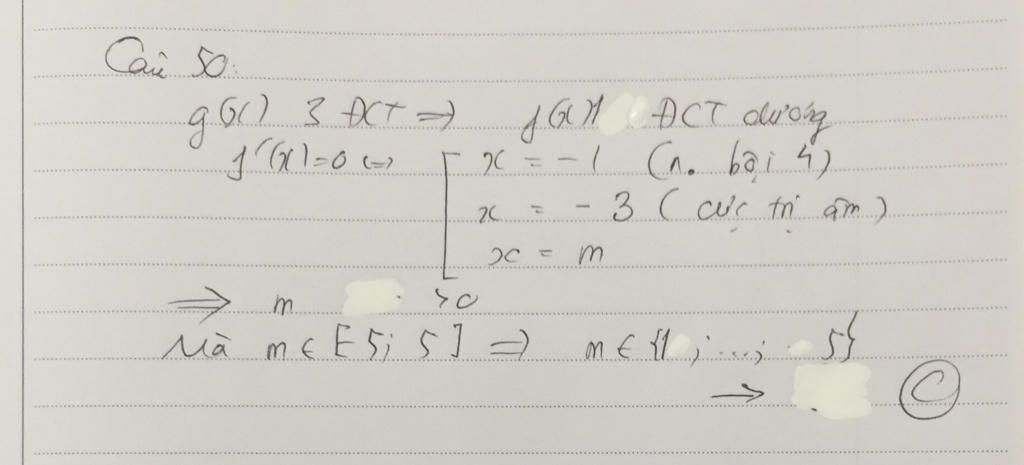 Câu 50:
g(x) 3 ĐCT => f(x) ĐCT dương
f'(x)=0 <=> [ x = -1 (n. bội 4)
x = -3 (cực trị âm)
x = m
=> m > 0
Mà m ∈ [5; 5] => m ∈ {1; ...; 5}
→ C